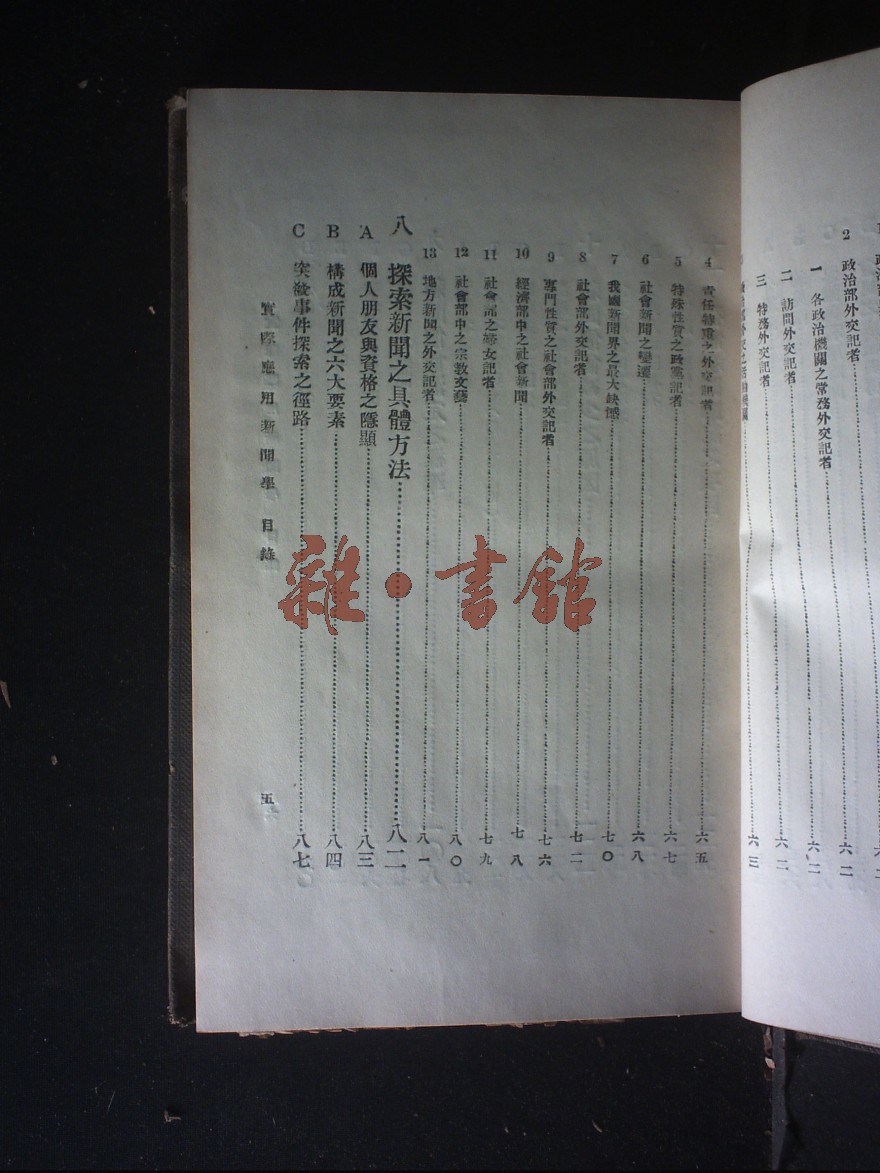 2 政治部外交記者……六二
一 各政治機關之常務外交記者……六二
二 訪問外交記者……六二
三 特務外交記者……六三
4 責任特重之外交記者……六五
5 特殊性質之政黨記者……六七
6 社會新聞之變遷……六八
7 我國新聞界之最大缺憾……七〇
8 社會部外交記者……七二
9 專門性質之社會部外交記者……七六
10 經濟部中之社會新聞……七八
11 社會部之婦女記者……七九
12 社會部中之宗教文藝……八〇
13 地方新聞之外交記者……八一
八 探索新聞之具體方法……八二
A 個人朋友與資格之隱顯……八三
B 構成新聞之六大要素……八四
C 突發事件探索之徑路……八七
實際應用新聞學 目錄
五
雜·書館